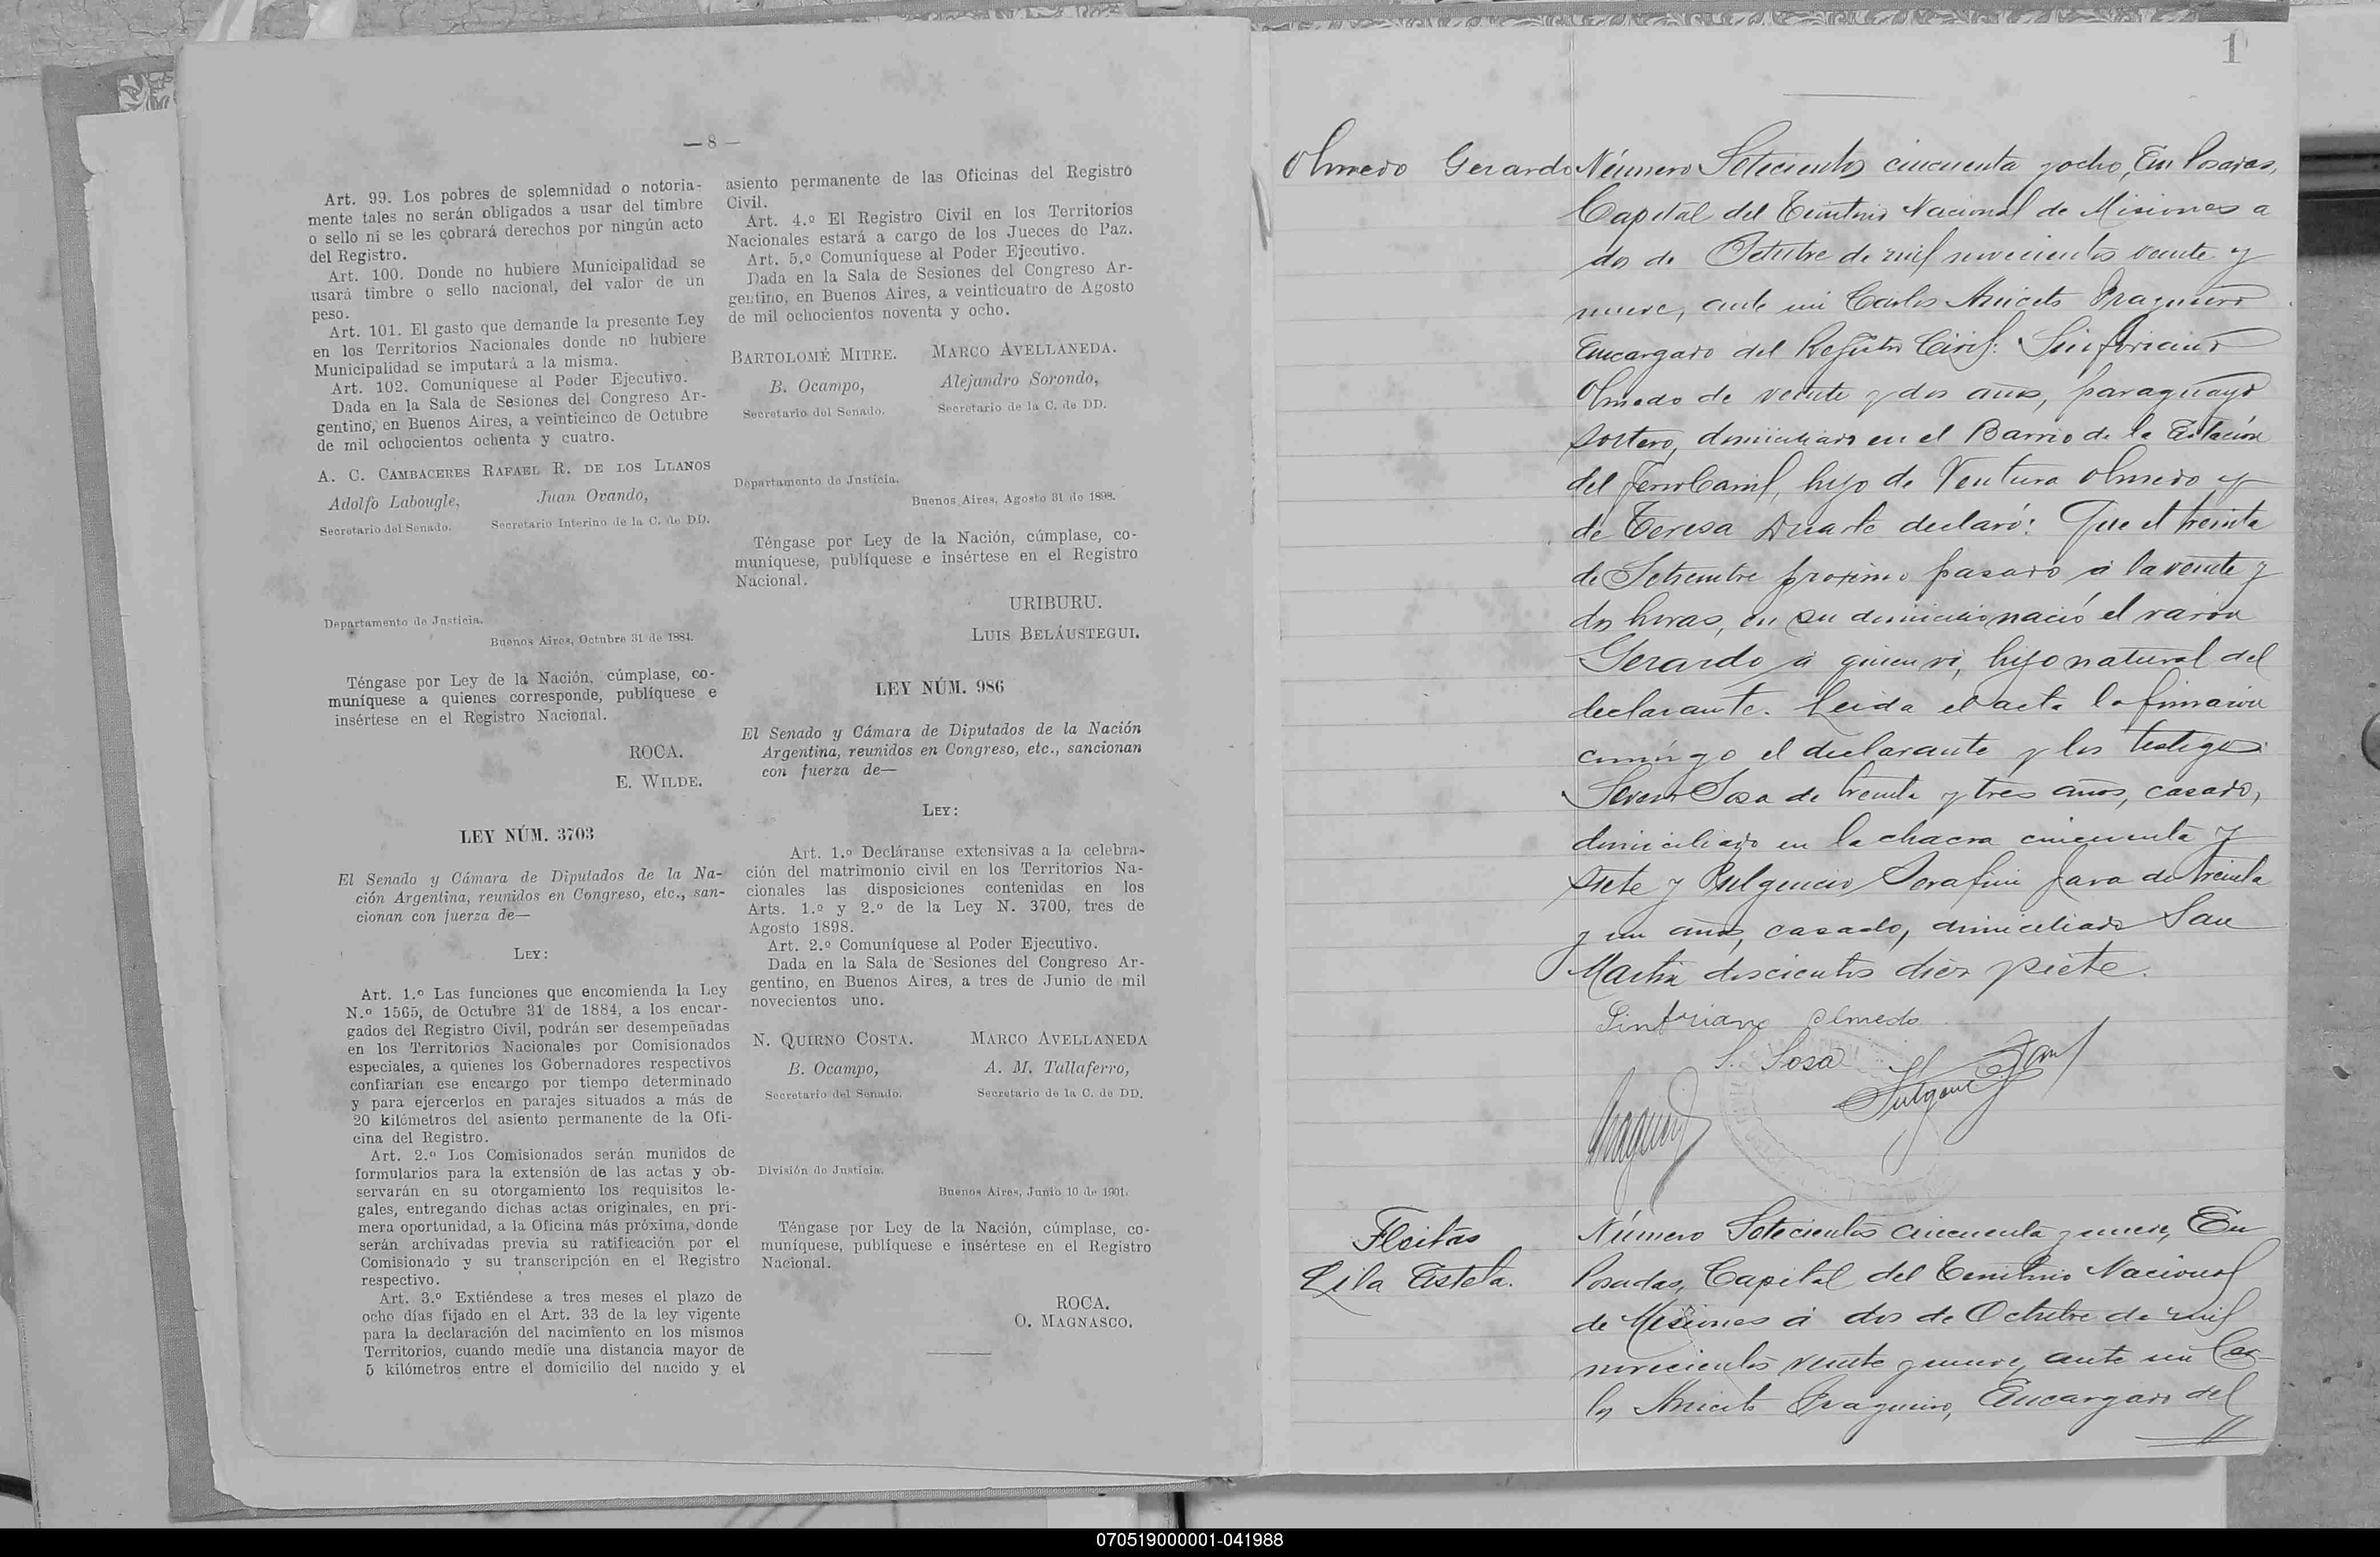 — 8 —
Art. 99. Los pobres de solemnidad o notoria-
mente tales no serán obligados a usar del timbre
o sello ni se les cobrará derechos por ningún acto
del Registro.
Art. 100. Donde no hubiere Municipalidad se
usará timbre o sello nacional, del valor de un
peso.
Art. 101. El gasto que demande la presente Ley
en los Territorios Nacionales donde no hubiere
Municipalidad se imputará a la misma.
Art. 102. Comuníquese al Poder Ejecutivo.
Dada en la Sala de Sesiones del Congreso Ar-
gentino, en Buenos Aires, a veinticinco de Octubre
de mil ochocientos ochenta y cuatro.
A. C. CAMBACERES RAFAEL R. DE LOS LLANOS
Adolfo Labougle, Juan Ovando,
Secretario del Senado. Secretario Interino de la C. de DD.
Departamento de Justicia.
Buenos Aires, Octubre 31 de 1884.
Téngase por Ley de la Nación, cúmplase, co-
muníquese a quienes corresponde, publíquese e
insértese en el Registro Nacional.
ROCA.
E. WILDE.
LEY NÚM. 3703
El Senado y Cámara de Diputados de la Na-
ción Argentina, reunidos en Congreso, etc., san-
cionan con fuerza de—
LEY:
Art. 1.º Las funciones que encomienda la Ley
N.º 1565, de Octubre 31 de 1884, a los encar-
gados del Registro Civil, podrán ser desempeñadas
en los Territorios Nacionales por Comisionados
especiales, a quienes los Gobernadores respectivos
confiarían ese encargo por tiempo determinado
y para ejercerlos en parajes situados a más de
20 kilómetros del asiento permanente de la Ofi-
cina del Registro.
Art. 2.º Los Comisionados serán munidos de
formularios para la extensión de las actas y ob-
servarán en su otorgamiento los requisitos le-
gales, entregando dichas actas originales, en pri-
mera oportunidad, a la Oficina más próxima, donde
serán archivadas previa su ratificación por el
Comisionado y su transcripción en el Registro
respectivo.
Art. 3.º Extiéndese a tres meses el plazo de
ocho días fijado en el Art. 33 de la ley vigente
para la declaración del nacimiento en los mismos
Territorios, cuando medie una distancia mayor de
5 kilómetros entre el domicilio del nacido y el
asiento permanente de las Oficinas del Registro
Civil.
Art. 4.º El Registro Civil en los Territorios
Nacionales estará a cargo de los Jueces de Paz.
Art. 5.º Comuníquese al Poder Ejecutivo.
Dada en la Sala de Sesiones del Congreso Ar-
gentino, en Buenos Aires, a veinticuatro de Agosto
de mil ochocientos noventa y ocho.
BARTOLOMÉ MITRE. MARCO AVELLANEDA.
B. Ocampo, Alejandro Sorondo,
Secretario del Senado. Secretario de la C. de DD.
Departamento de Justicia.
Buenos Aires, Agosto 31 de 1898.
Téngase por Ley de la Nación, cúmplase, co-
muníquese, publíquese e insértese en el Registro
Nacional.
URIBURU.
LUIS BELÁUSTEGUI.
LEY NÚM. 986
El Senado y Cámara de Diputados de la Nación
Argentina, reunidos en Congreso, etc., sancionan
con fuerza de—
LEY:
Art. 1.º Decláranse extensivas a la celebra-
ción del matrimonio civil en los Territorios Na-
cionales las disposiciones contenidas en los
Arts. 1.º y 2.º de la Ley N. 3700, tres de
Agosto 1898.
Art. 2.º Comuníquese al Poder Ejecutivo.
Dada en la Sala de Sesiones del Congreso Ar-
gentino, en Buenos Aires, a tres de Junio de mil
novecientos uno.
N. QUIRNO COSTA. MARCO AVELLANEDA
B. Ocampo, A. M. Tallaferro,
Secretario del Senado. Secretario de la C. de DD.
División de Justicia.
Buenos Aires, Junio 10 de 1901.
Téngase por Ley de la Nación, cúmplase, co-
muníquese, publíquese e insértese en el Registro
Nacional.
ROCA.
O. MAGNASCO.
1
Olmedo Gerardo
Número Setecientos cincuenta y ocho, En Posadas,
Capital del Territorio Nacional de Misiones a
dos de Octubre de mil novecientos veinte y
nueve, ante mi Carlos Aniceto
Encargado del Registro Civil: Sinforiano
Olmedo de veinte y dos años, paraguayo
soltero, domiciliado en el Barrio de la Estación
del FerroCarril, hijo de Ventura Olmedo y
de Teresa Duarte declaró: Que el treinta
de Setiembre proximo pasado á la veinte y
dos horas, en su domicilio nació el varon
Gerardo á quien vi, hijo natural del
declarante. Leida el acta la firmaron
conmigo el declarante y los testigos
Severo Sosa de treinta y tres años, casado,
domiciliado en la chacra cincuenta y
siete y Fulgencio Serafin Jara de treinta
y un años, casado, domiciliado San
Martin doscientos diez y siete.
Sinforiano Olmedo
S. Sosa
Fleitas
Lila Estela.
Número Setecientos cincuenta y nueve, En
Posadas, Capital del Territorio Nacional
de Misiones á dos de Octubre de mil
novecientos veinte y nueve, ante mi Car-
los Aniceto Encargado del
070519000001-041988